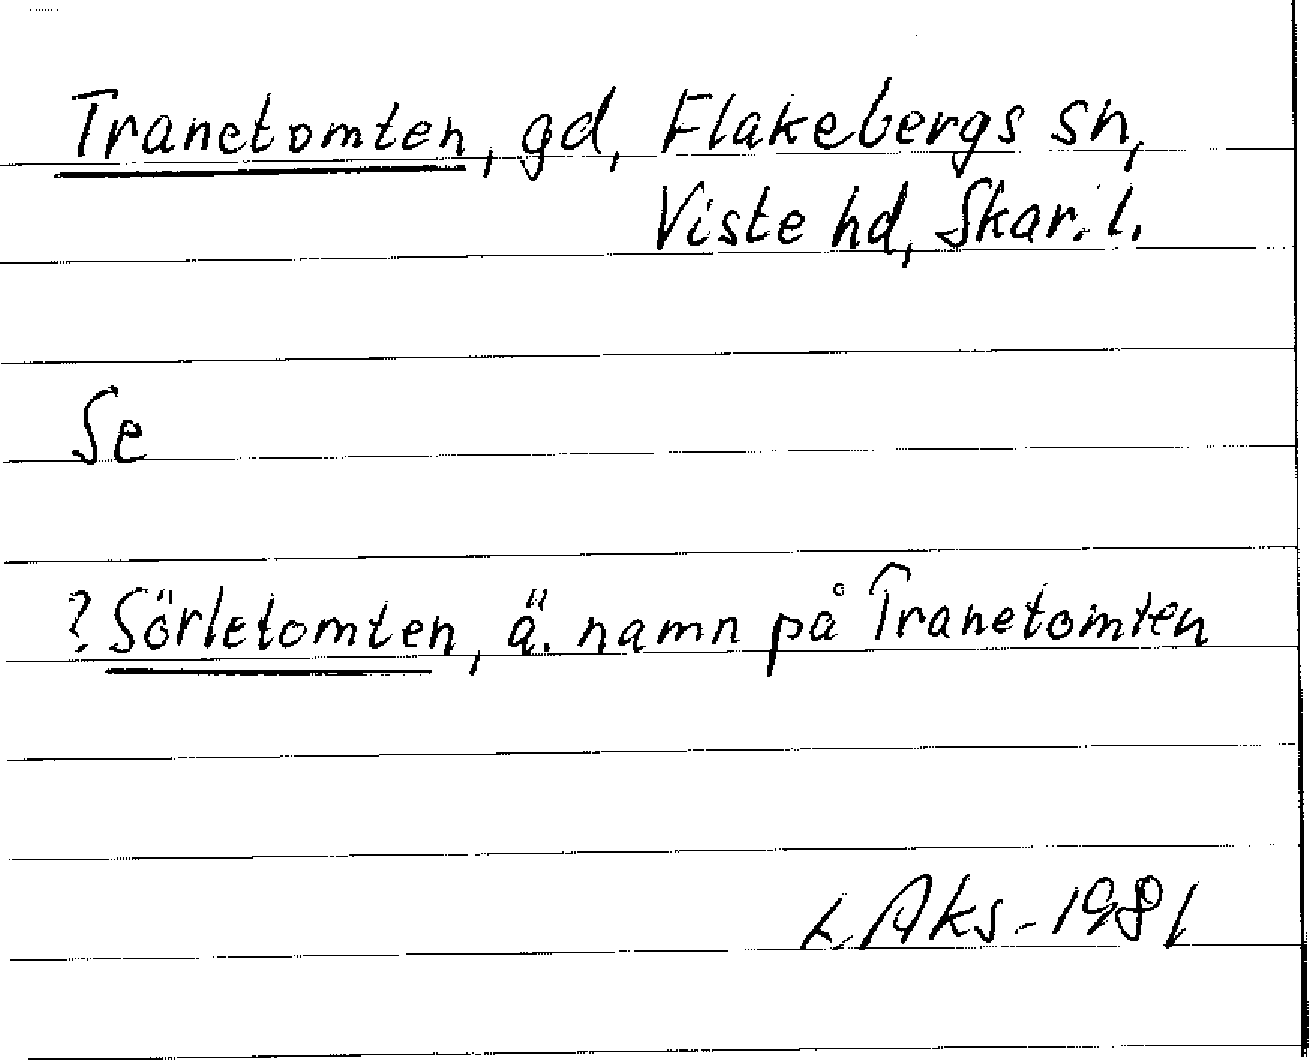 Tranetomten, gd, Flakebergs sn,
Viste hd, Skar. l.
Se
? Sörletomten, ä. namn på Tranetomten
L Aks - 1981